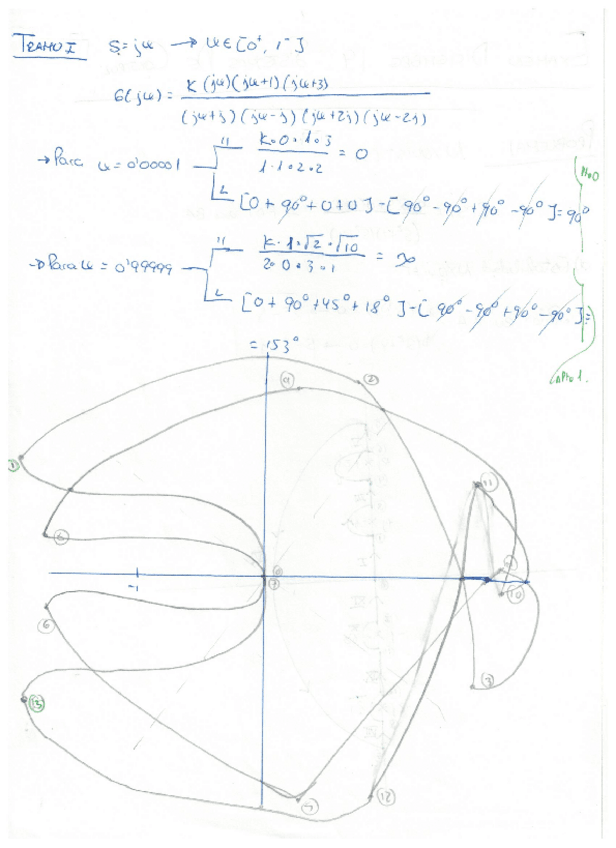 TRAMO I S=jω → ω∈[0⁺, 1⁻]
G(jω) = K (jω)(jω+1)(jω+3) / (jω+j)(jω-j)(jω+2j)(jω-2j)
→ Para ω = 0'00001 || K·0·1·3 / 1·1·2·2 = 0
∟ [0 + 90° + 0 + 0] - [90° - 90° + 90° - 90°] = 90°
→ Para ω = 0'99999 || K·1·√2·√10 / 2·0·3·1 = ∞
∟ [0 + 90° + 45° + 18°] - [90° - 90° + 90° - 90°] =
= 153°
Pto 0
Pto 1.
2
1
11
10
-1
7
3
13
12